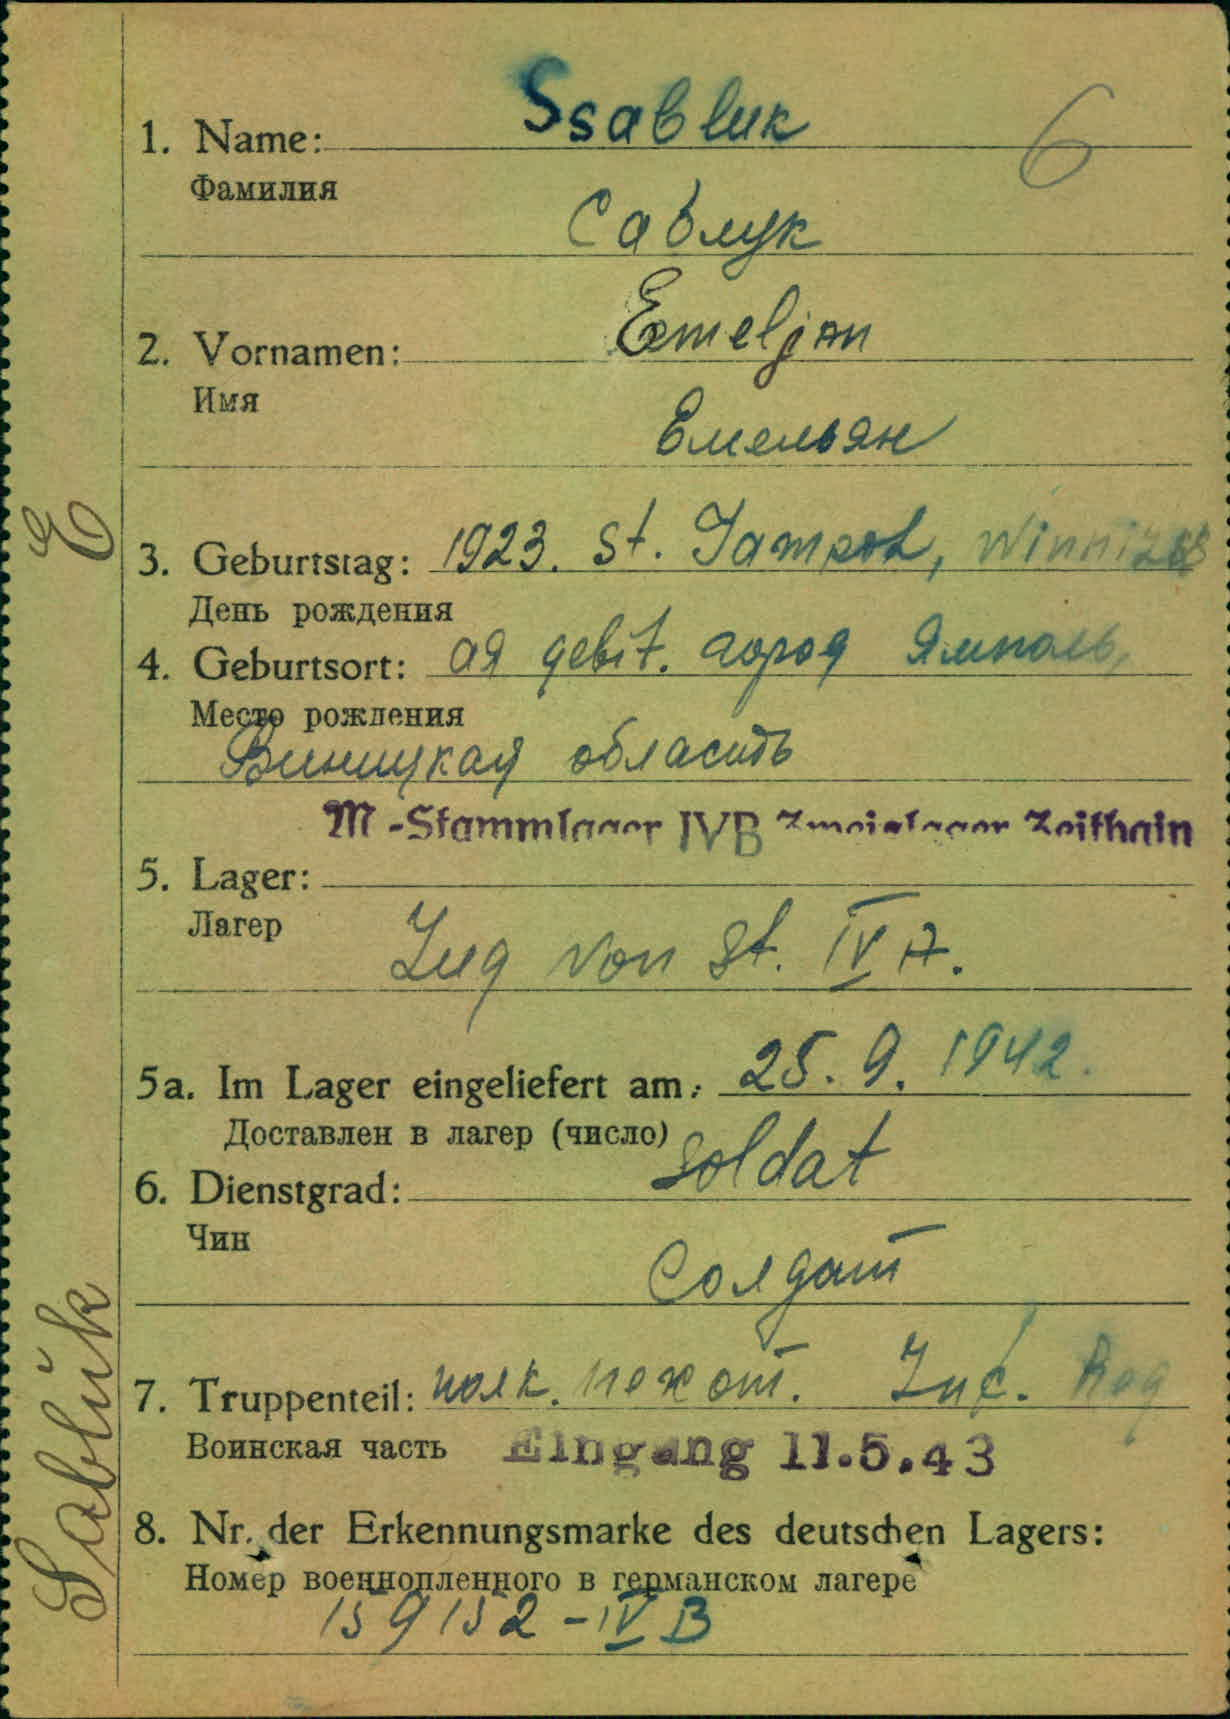 Ssabluk
1. Name:
6
Фамилия
Саблук
Emeljan
2. Vornamen:
Имя
Емельян
E
3. Geburtstag: 1923. St. Jampol, Winnizk
День рождения
4. Geburtsort: ая gebit. город Ямполь,
Место рождения
Виницкая область
M-Stammlager IVB Zweiglager Zeithain
5. Lager:
Лагер
Zug von St. IV A.
5a. Im Lager eingeliefert am: 25. 9. 1942.
Доставлен в лагер (число)
Soldat
6. Dienstgrad:
Чин
Солдат
7. Truppenteil: полк. пехот. Inf. Reg
Воинская часть Eingang 11.5.43
8. Nr. der Erkennungsmarke des deutschen Lagers:
Номер военнопленного в германском лагере
159152-IV B
Sabluk